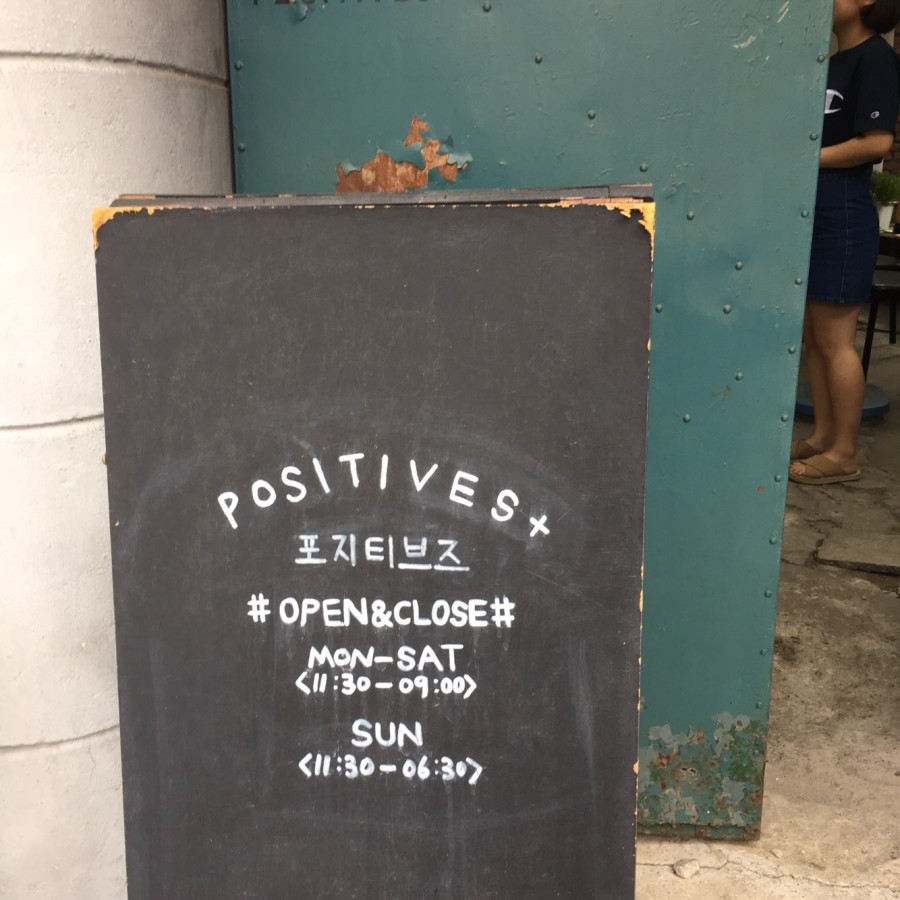 POSITIVES+
포지티브즈
#OPEN&CLOSE#
MON-SAT
<11:30-09:00>
SUN
<11:30-06:30>